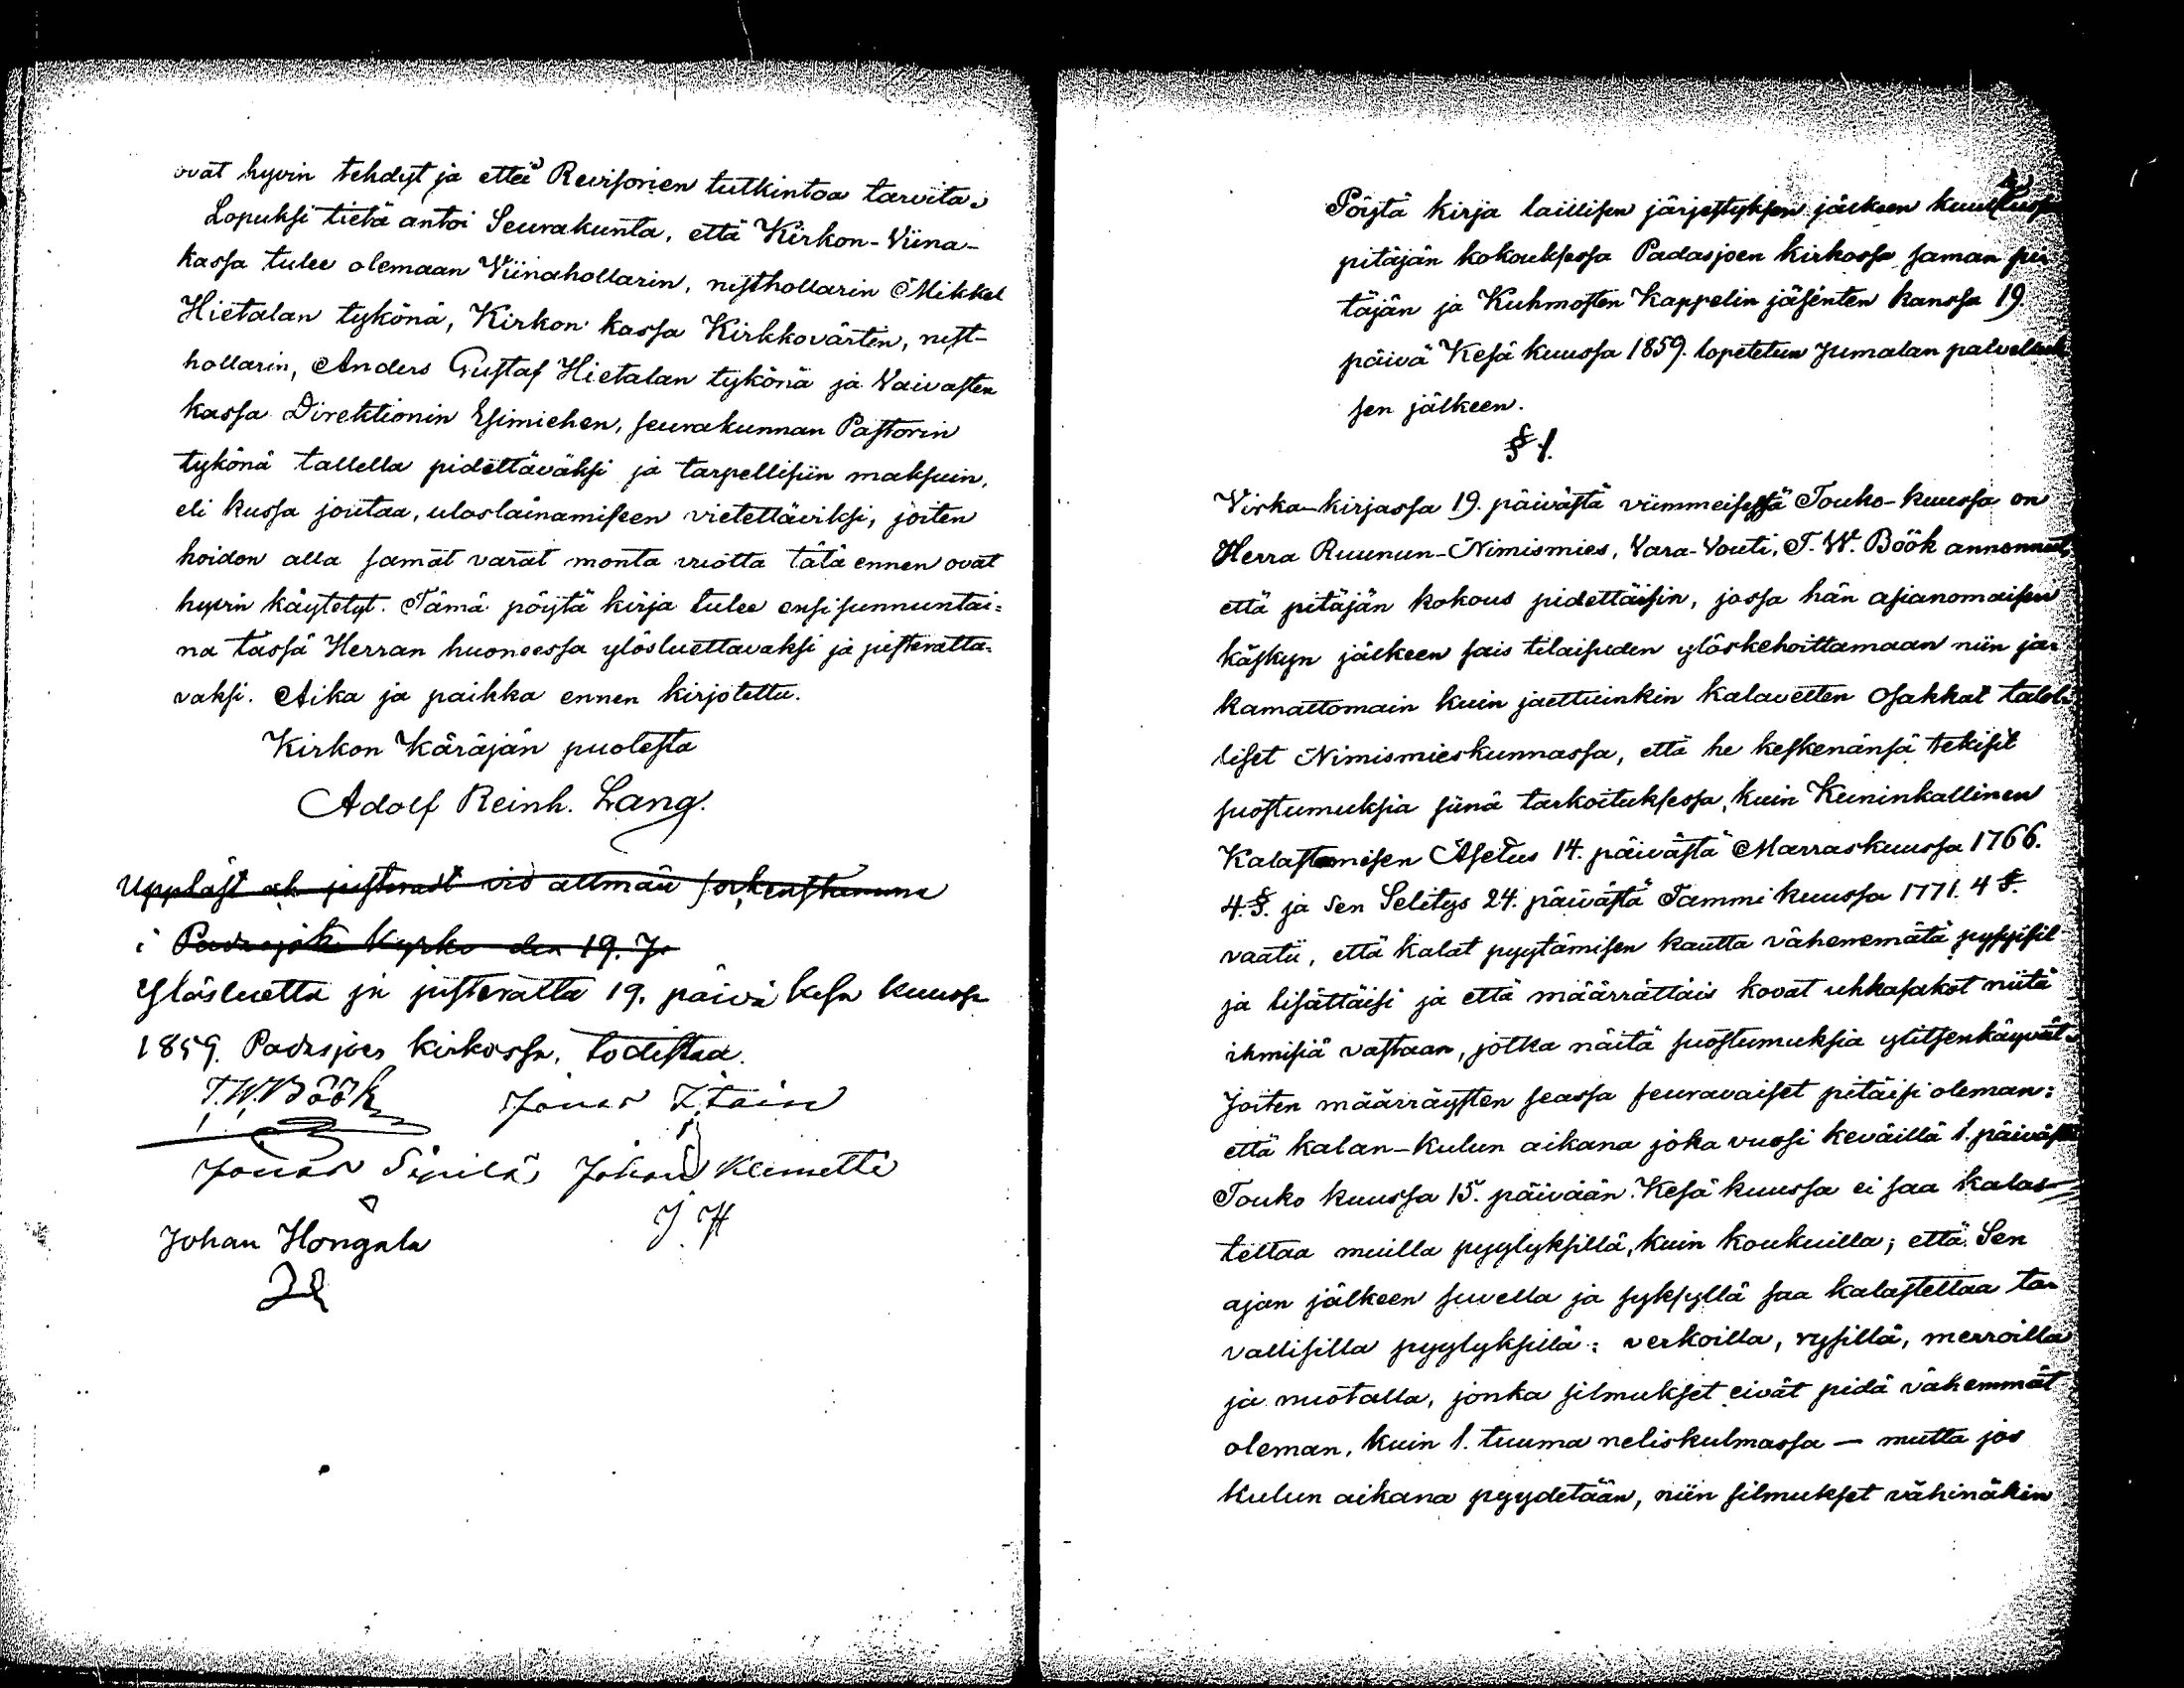 ovat hyvin tehdyt ja ettei Revisorien tutkintoa tarvita.
Lopuksi tietä antoi Seurakunta, että Kirkon-Viina-
kassa tulee olemaan Viinahollarin, nysthollarin Mikkel
Hietalan tykönä, Kirkon kassa Kirkkovärten, nyst-
hollarin, Anders Gustaf Hietalan tykönä ja Vaivasten
kassa Direktionin Esimiehen, seurakunnan Pastorin
tykönä tallella pidettäväksi ja tarpellisiin maksuin,
eli kussa joutaa, uloslainamiseen vietettäviksi, joiten
hoidon alla samat varat monta vuotta tätä ennen ovat
hyvin käytetyt. Tämä pöytä kirja tulee ensi sunnuntai=
na tässä Herran huoneessa ylösluettavaksi ja justeratta=
vaksi. Aika ja paikka ennen kirjotettu.
Kirkon Käräjän puolesta
Adolf Reinh. Lang.
Uppläst och justeradt vid allmän sockenstämma
i Padasjoki Kyrka den 19. Ju
Ylösluettu ja justerattu 19. päivä kesä kuussa
1859. Padasjoen kirkossa, todistaa.
T. W. Böök Jonas
Jonas Sipilä Johan Klemetti
J H
Johan Hongala
Pöytä kirja laillisen järjestyksen jälkeen kuulutussa
pitäjän kokouksessa Padasjoen kirkossa saman pi
täjän ja Kuhmosten Kappelin jäsenten kanssa 19
päivä Kesä kuussa 1859. lopetetun Jumalan palveluk
sen jälkeen.
§ 1.
Virka-kirjassa 19. päivästä viimmeisessä Touko-kuussa on
Herra Ruunun-Nimismies, Vara-Vouti, T. W. Böök annonnut,
että pitäjän kokous pidettäisin, jossa hän asianomaisen
käskyn jälkeen sais tilaisuden ylöskehoittamaan niin ja=
kamattomain kuin jaettuinkin kalavetten Osakkat talol=
liset Nimismieskunnassa, että he keskenänsä tekisit
suostumuksia siinä tarkoituksessa, kuin Kuninkallinen
Kalastamisen Asetus 14. päivästä Marraskuussa 1766.
4. §. ja sen Selitys 24. päivästä Tammi kuussa 1771. 4 §.
vaatii, että kalat pyytämisen kautta vähenemätä pysyisit
ja lisättäisi ja että määrrättäis kovat uhkasakot niitä
ihmisiä vastaan, jotka näitä suostumuksia ylitsenkäyvät.
Joiten määrräysten seassa seuravaiset pitäisi oleman:
että kalan-kulun aikana joka vuosi keväillä 1. päiväst
Touko kuussa 15. päivään Kesä kuussa ei saa kalas-
tettaa muilla pyytyksillä, kuin koukuilla; että Sen
ajan jälkeen suvella ja syksyllä saa kalastettaa ta-
vallisilla pyytyksillä: verkoilla, rysillä, merroilla
ja nuotalla, jonka silmukset eivät pidä vähemmät
oleman, kuin 1. tuuma neliskulmassa — mutta jos
kulun aikana pyydetään, niin silmukset vähinäkin